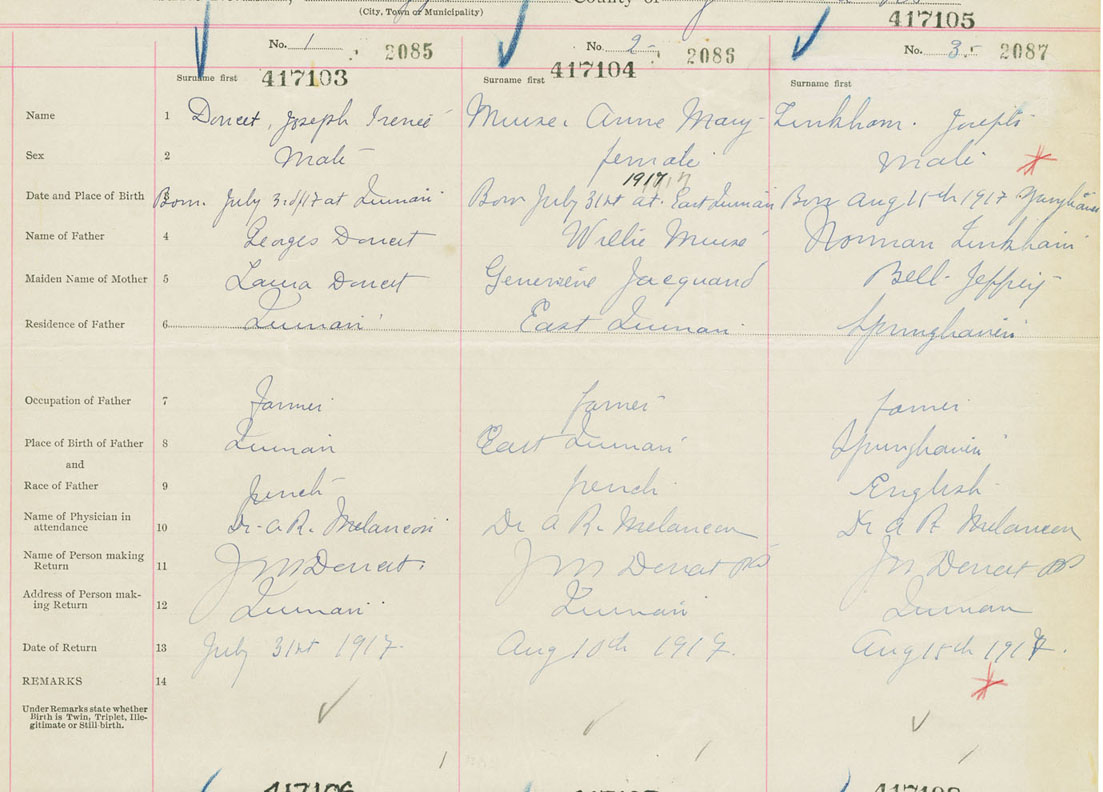 (City, Town or Municipality)
County of
417105
No. 1 2085
No. 2 2086
No. 3 2087
Surname first 417103
Surname first 417104
Surname first
Name 1 Doucet, Joseph Irenée Muise, Anne Mary Linkham. Joseph
Sex 2 Male female Male
1917
Date and Place of Birth Born. July 3rd/17 at Quinan Born July 31st at East Quinan Born Aug 15th 1917 Springhaven
Name of Father 4 Georges Doucet Willie Muise Norman Linkham
Maiden Name of Mother 5 Laura Doucet Geneviève Jacquard Bell Jeffrey
Residence of Father 6 Quinan East Quinan Springhaven
Occupation of Father 7 Farmer farmer farmer
Place of Birth of Father 8 Quinan East Quinan Springhaven
and
Race of Father 9 french french English
Name of Physician in
attendance 10 Dr. A R. Melancon Dr A R. Melancon Dr A R Melancon
Name of Person making
Return 11 J M Doucet. J M Doucet J M Doucet
Address of Person mak-
ing Return 12 Quinan Quinan Quinan
Date of Return 13 July 31st 1917. Aug 10th 1917. Aug 15th 1917.
REMARKS 14
Under Remarks state whether
Birth is Twin, Triplet, Ille-
gitimate or Still-birth.
417106